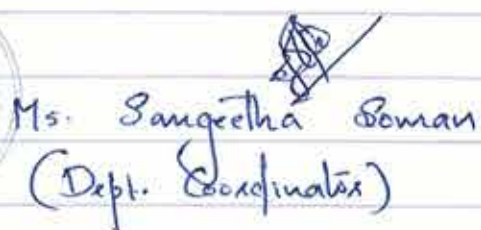 Ms. Sangeetha Soman
(Dept. Coordinator)